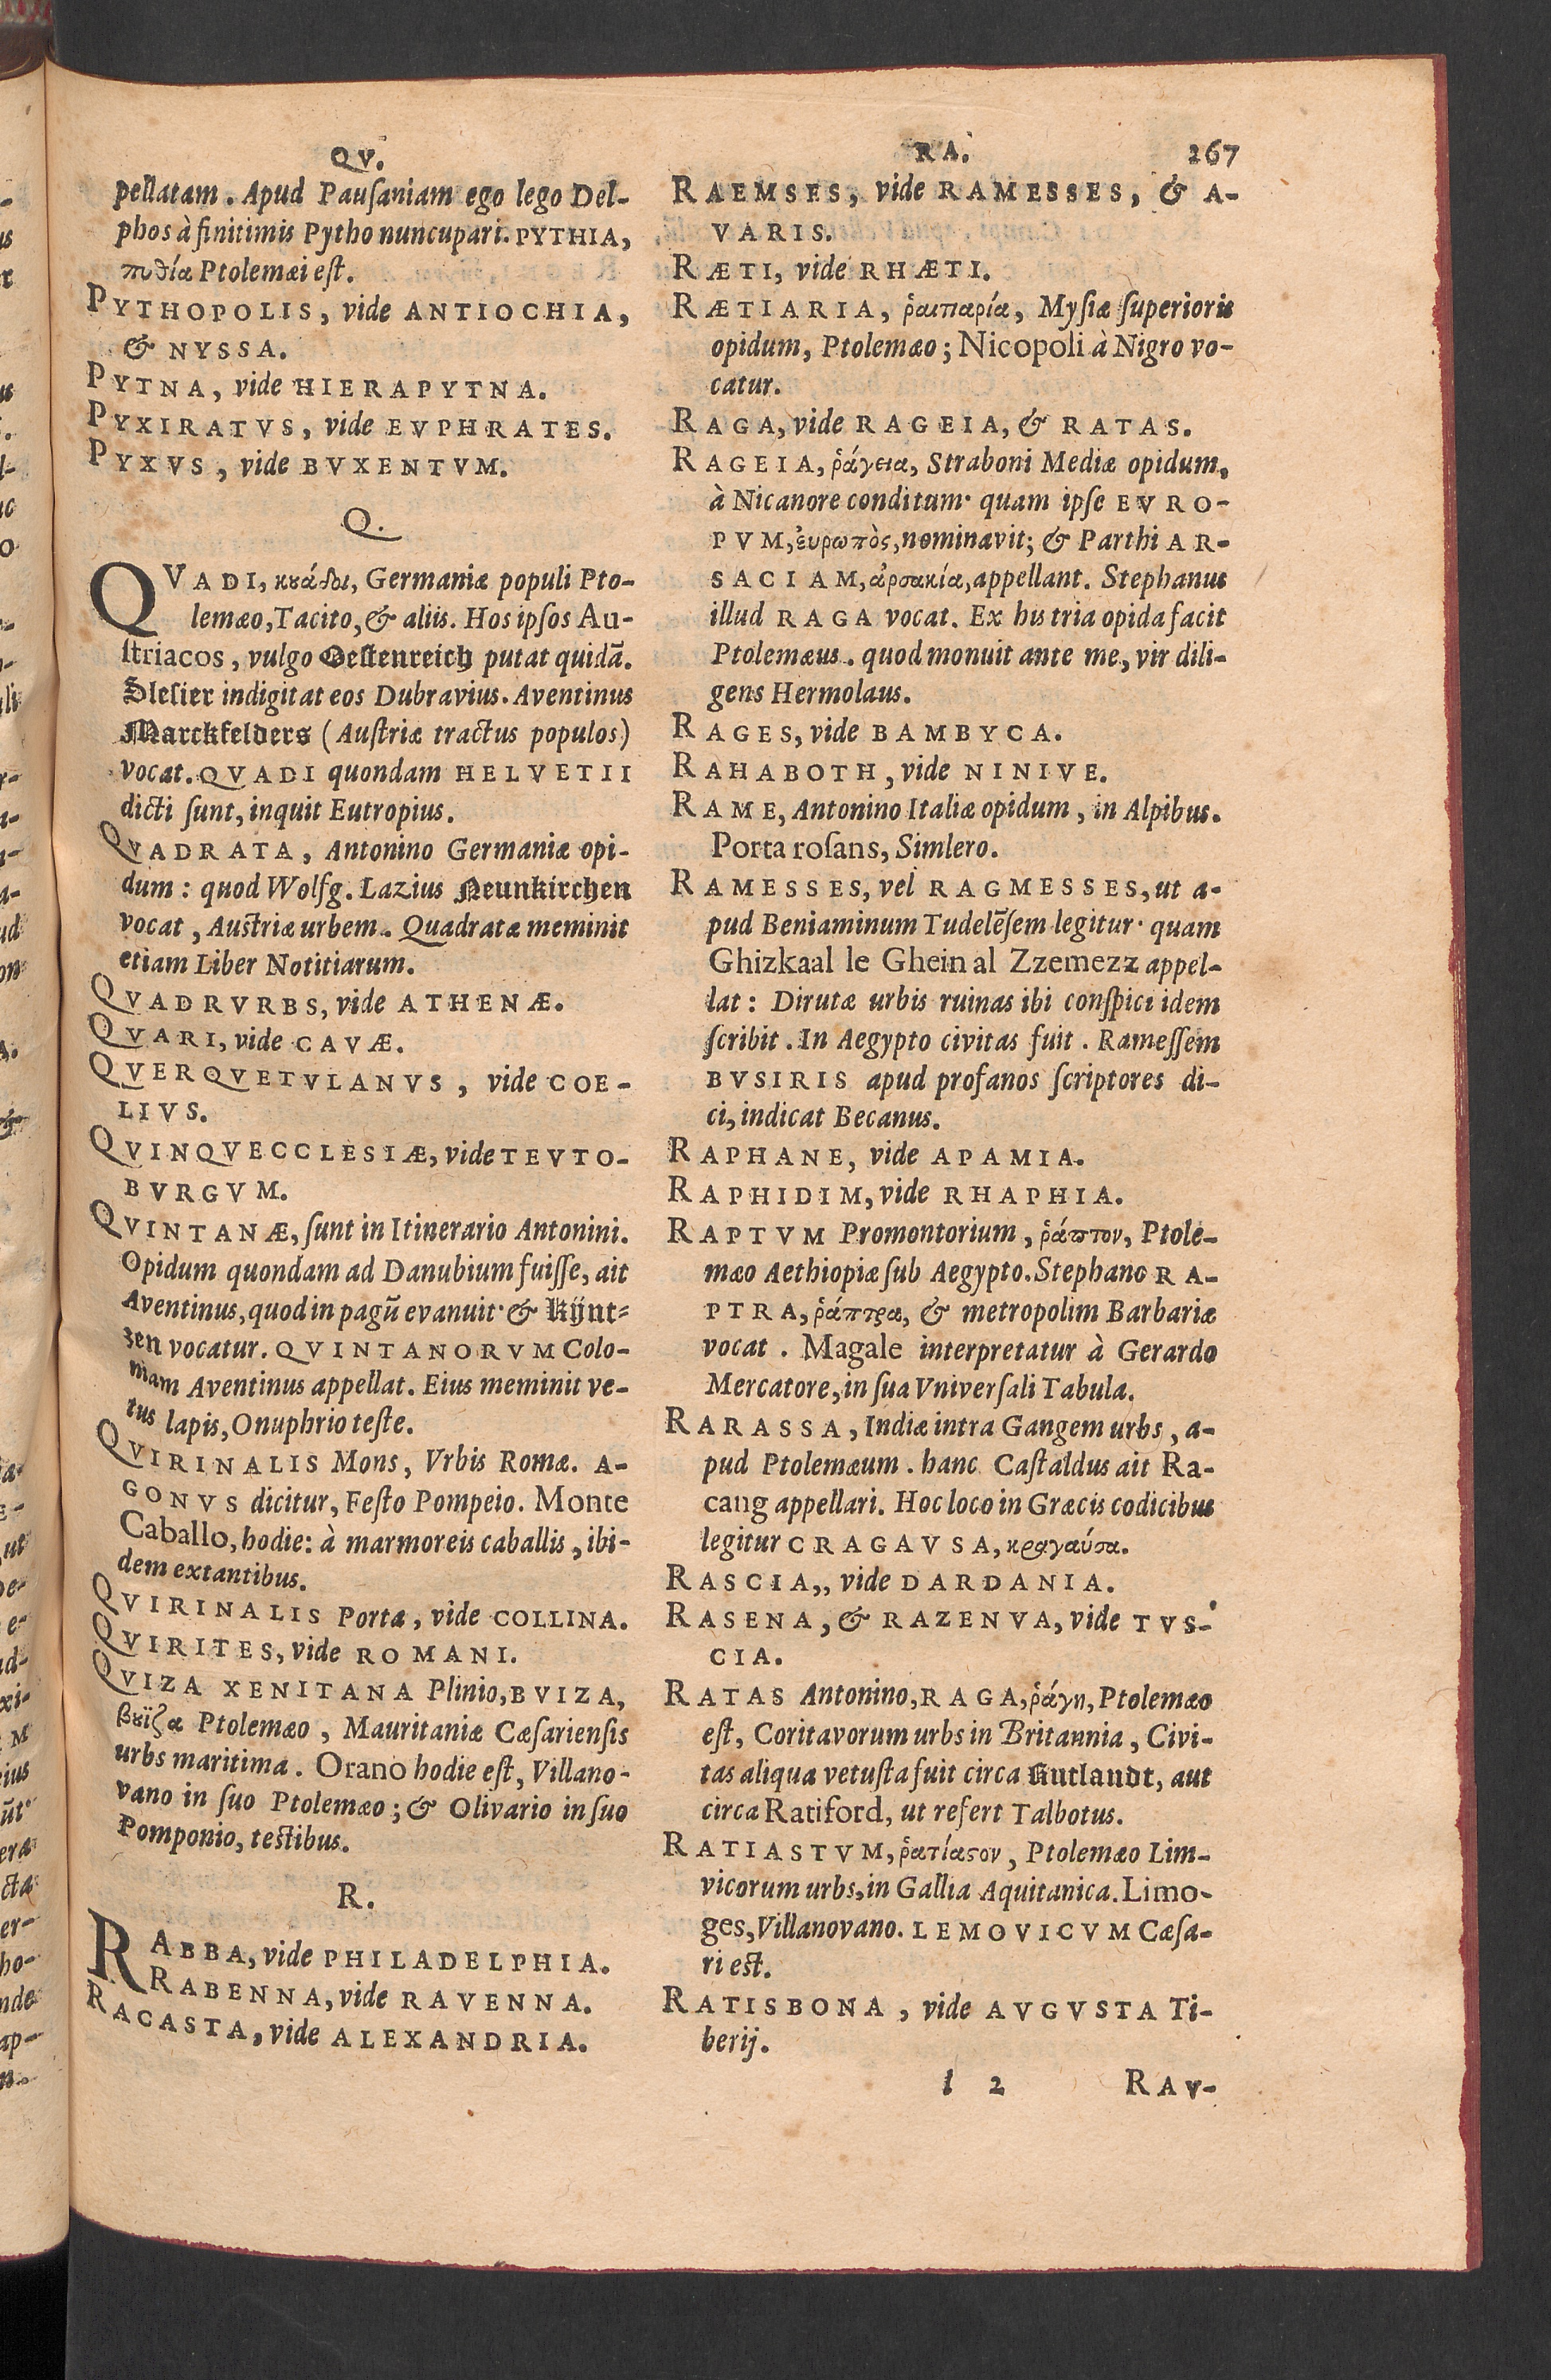 QV.
pellatam. Apud Pauſaniam ego lego Del-
phos à finitimis Pytho nuncupari. PYTHIA,
πυθία Ptolemæi eſt.
PYTHOPOLIS, vide ANTIOCHIA,
& NYSSA.
PYTNA, vide HIERAPYTNA.
PYXIRATVS, vide EVPHRATES.
PYXVS, vide BVXENTVM.
Q.
QVADI, κȣάδοι, Germaniæ populi Pto-
lemæo, Tacito, & aliis. Hos ipſos Au-
ſtriacos, vulgo Oeſtenreich putat quidā.
Sleſier indigitat eos Dubravius. Aventinus
Marckfelders (Auſtriæ tractus populos)
vocat. QVADI quondam HELVETII
dicti ſunt, inquit Eutropius.
QVADRATA, Antonino Germaniæ opi-
dum: quod Wolfg. Lazius Neunkirchen
vocat, Auſtriæ urbem. Quadratæ meminit
etiam Liber Notitiarum.
QVADRVRBS, vide ATHENÆ.
QVARI, vide CAVÆ.
QVERQVETVLANVS, vide COE-
LIVS.
QVINQVECCLESIÆ, vide TEVTO-
BVRGVM.
QVINTANÆ, ſunt in Itinerario Antonini.
Opidum quondam ad Danubium fuiſſe, ait
Aventinus, quod in pagū evanuit· & Kijnt-
zen vocatur. QVINTANORVM Colo-
niam Aventinus appellat. Eius meminit ve-
tus lapis, Onuphrio teſte.
QVIRINALIS Mons, Vrbis Romæ. A-
GONVS dicitur, Feſto Pompeio. Monte
Caballo, hodie: à marmoreis caballis, ibi-
dem extantibus.
QVIRINALIS Porta, vide COLLINA.
QVIRITES, vide ROMANI.
QVIZA XENITANA Plinio, BVIZA,
βȣϊζα Ptolemæo, Mauritaniæ Cæſarienſis
urbs maritima. Orano hodie eſt, Villano-
vano in ſuo Ptolemæo; & Olivario in ſuo
Pomponio, teſtibus.
R.
RABBA, vide PHILADELPHIA.
RABENNA, vide RAVENNA.
RACASTA, vide ALEXANDRIA.
RA. 267
RAEMSES, vide RAMESSES, & A-
VARIS.
RÆTI, vide RHÆTI.
RÆTIARIA, ῥαιτιαρία, Myſiæ ſuperioris
opidum, Ptolemæo; Nicopoli à Nigro vo-
catur.
RAGA, vide RAGEIA, & RATAS.
RAGEIA, ῥάγεια, Straboni Mediæ opidum,
à Nicanore conditum· quam ipſe EVRO-
PVM, ἐυρωπὸς, nominavit; & Parthi AR-
SACIAM, ἀρσακία, appellant. Stephanus
illud RAGA vocat. Ex his tria opida facit
Ptolemæus. quod monuit ante me, vir dili-
gens Hermolaus.
RAGES, vide BAMBYCA.
RAHABOTH, vide NINIVE.
RAME, Antonino Italiæ opidum, in Alpibus.
Porta roſans, Simlero.
RAMESSES, vel RAGMESSES, ut a-
pud Beniaminum Tudelēſem legitur· quam
Ghizkaal le Ghein al Zzemezz appel-
lat: Dirutæ urbis ruinas ibi conſpici idem
ſcribit. In Aegypto civitas fuit. Rameſſem
BVSIRIS apud profanos ſcriptores di-
ci, indicat Becanus.
RAPHANE, vide APAMIA.
RAPHIDIM, vide RHAPHIA.
RAPTVM Promontorium, ῥάπτον, Ptole-
mæo Aethiopiæ ſub Aegypto. Stephano RA-
PTRA, ῥάπτρα, & metropolim Barbariæ
vocat. Magale interpretatur à Gerardo
Mercatore, in ſua Vniverſali Tabula.
RARASSA, Indiæ intra Gangem urbs, a-
pud Ptolemæum. hanc Caſtaldus ait Ra-
cang appellari. Hoc loco in Græcis codicibus
legitur CRAGAVSA, κραγαύσα.
RASCIA,, vide DARDANIA.
RASENA, & RAZENVA, vide TVS-
CIA.
RATAS Antonino, RAGA, ῥάγη, Ptolemæo
eſt, Coritavorum urbs in Britannia, Civi-
tas aliqua vetuſta fuit circa Rutlandt, aut
circa Ratiford, ut refert Talbotus.
RATIASTVM, ῥατίαστον, Ptolemæo Lim-
vicorum urbs, in Gallia Aquitanica. Limo-
ges, Villanovano. LEMOVICVM Cæſa-
ri eſt.
RATISBONA, vide AVGVSTA Ti-
berij.
l 2 RAV-